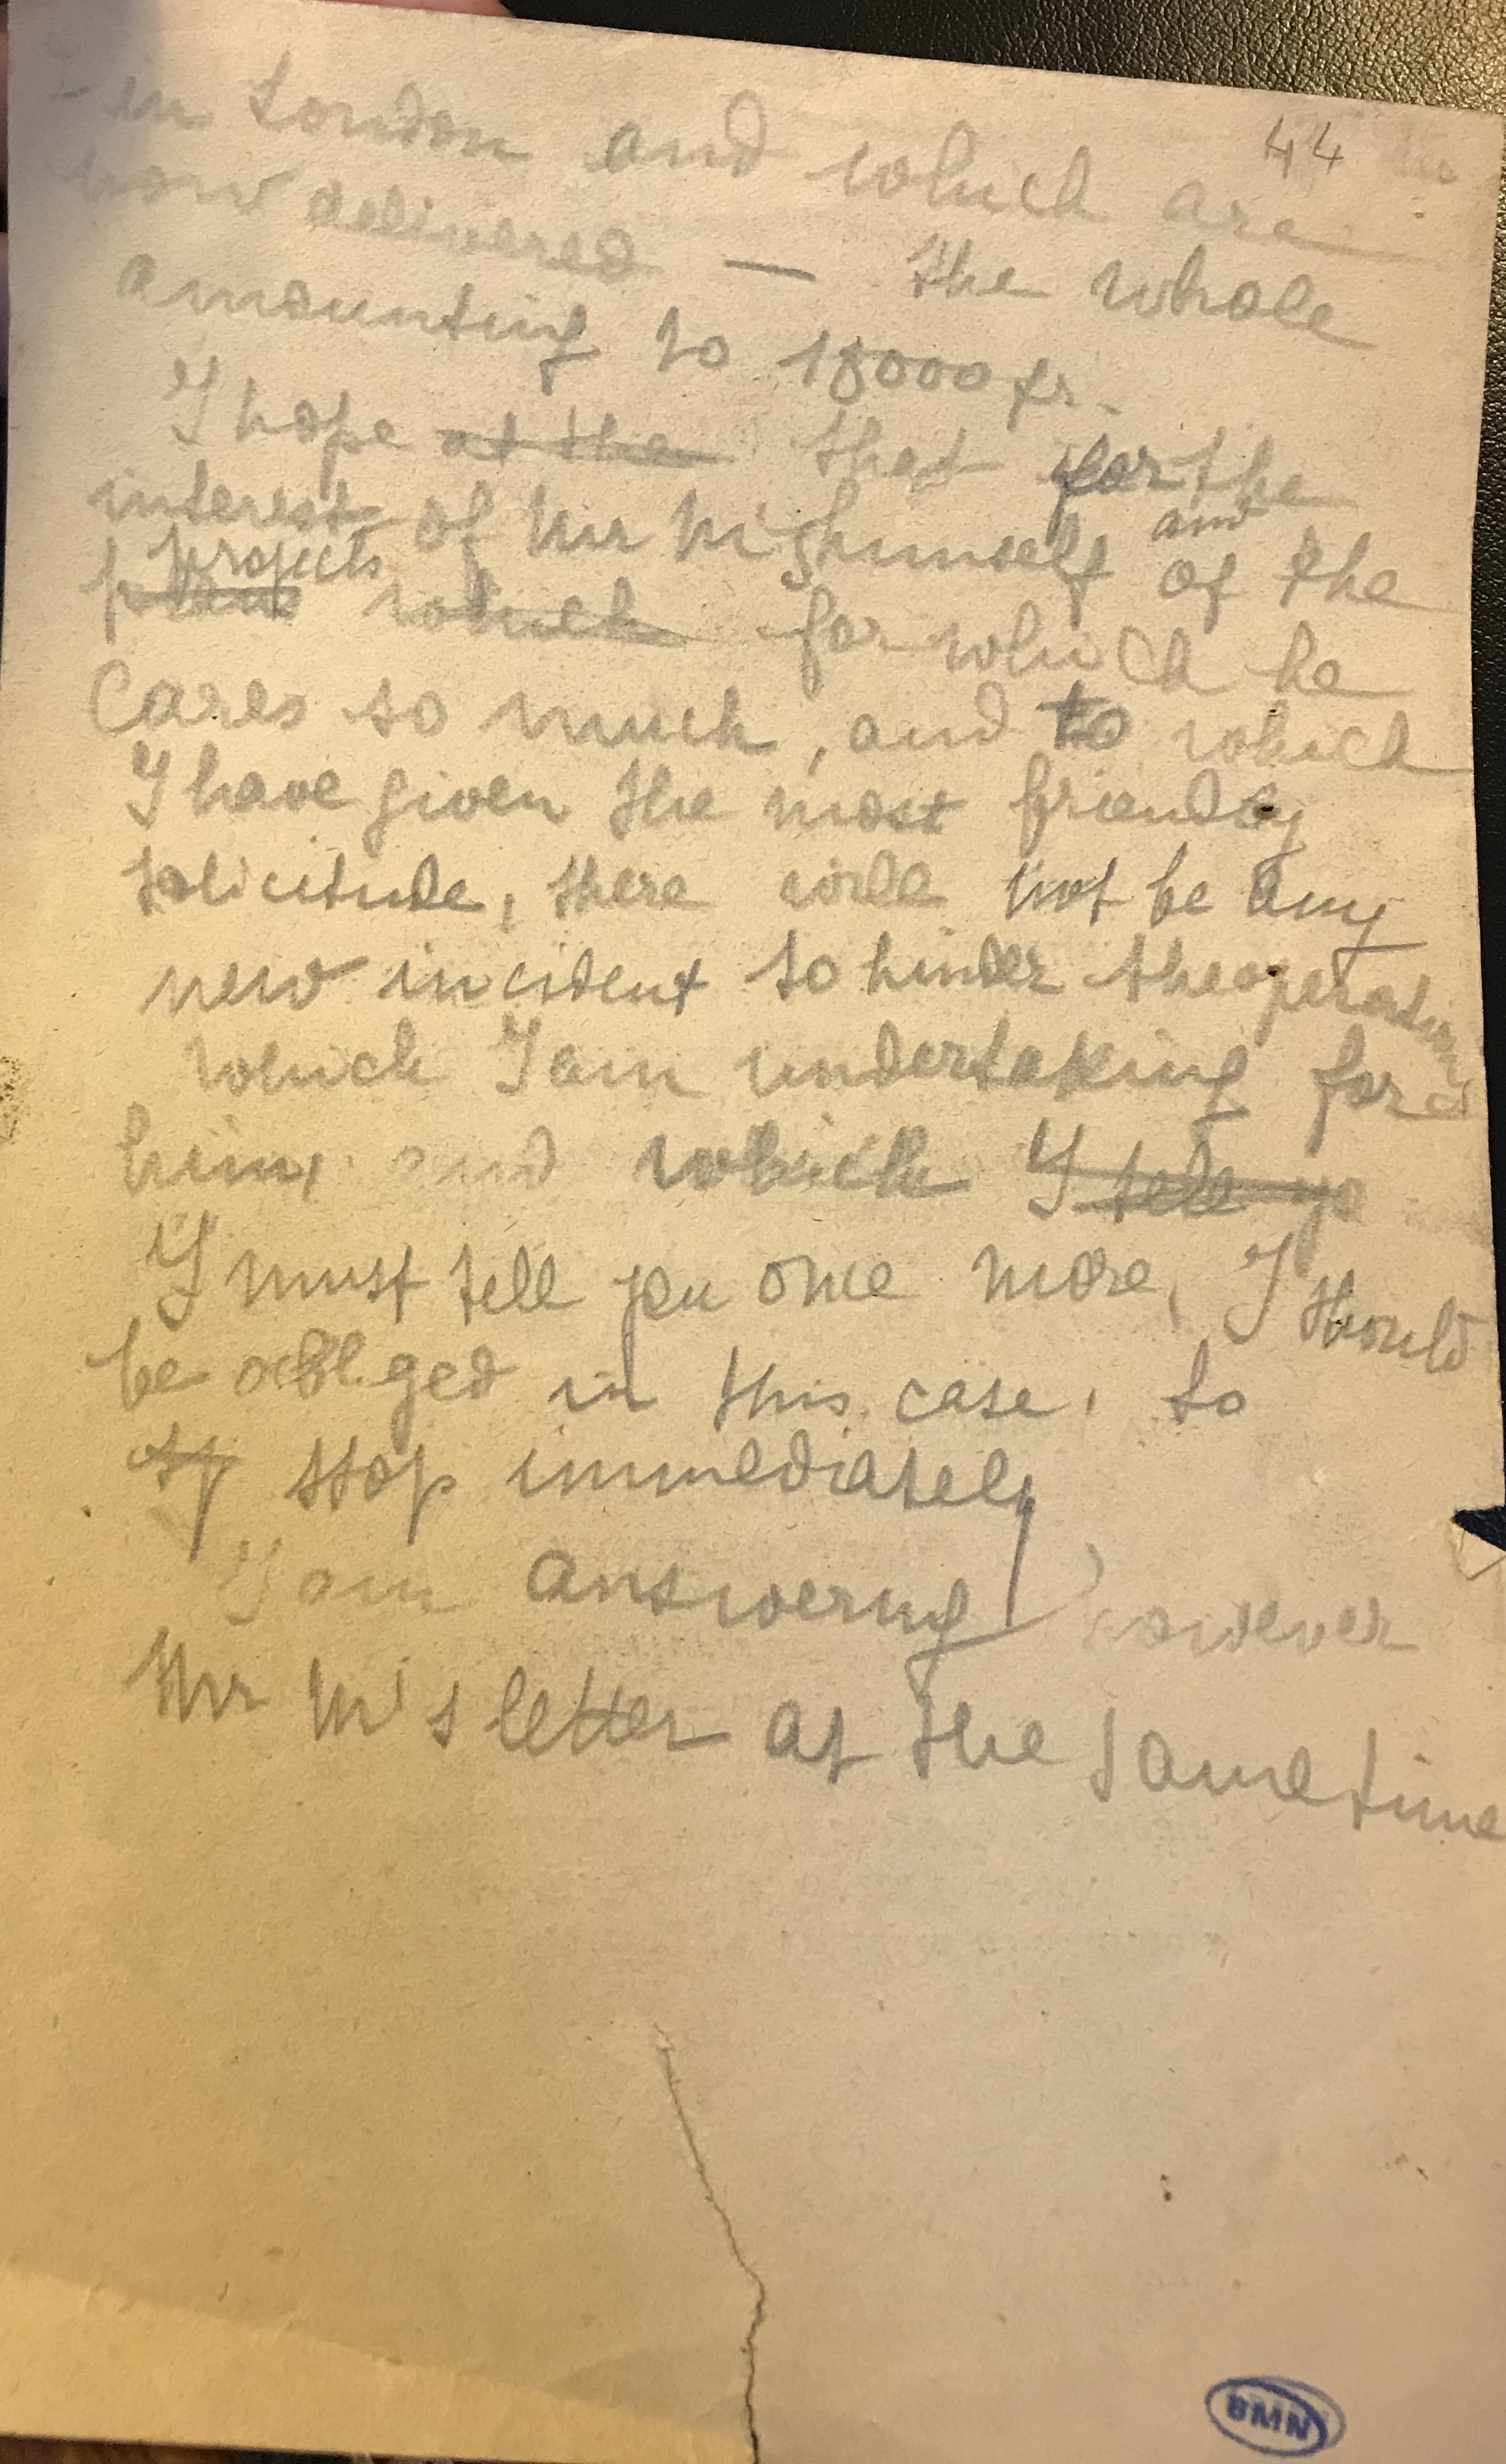 44
in London and which are
now delivered — the whole
amounting to 18000 fr.
I hope at the that for the
interest of Mr M himself and of the
plans projects which for which he
cares so much, and to which
I have given the most friendly
solicitude, there will not be any
new incident to hinder the operation
which I am undertaking for
him, and which I tell yo
I must tell you once more, I should
be obliged in this case, to
st stop immediately
I am answering however
Mr M's letter at the same time
BMN